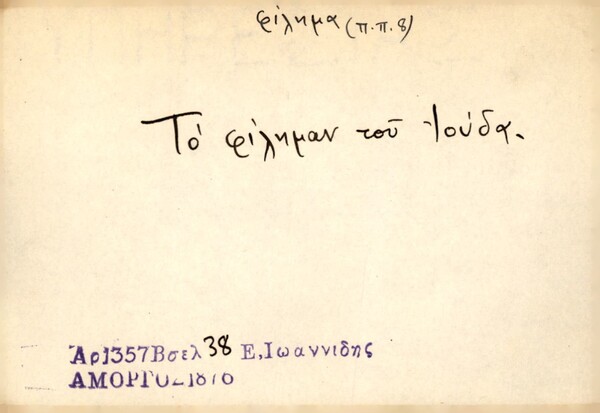 φίλημα (π.π. 8)
Τὸ φίλημαν τοῦ Ἰούδα.
Ἀρ1357Βσελ 38 Ε, Ιωαννιδης
ΑΜΟΡΓΟΣ1876